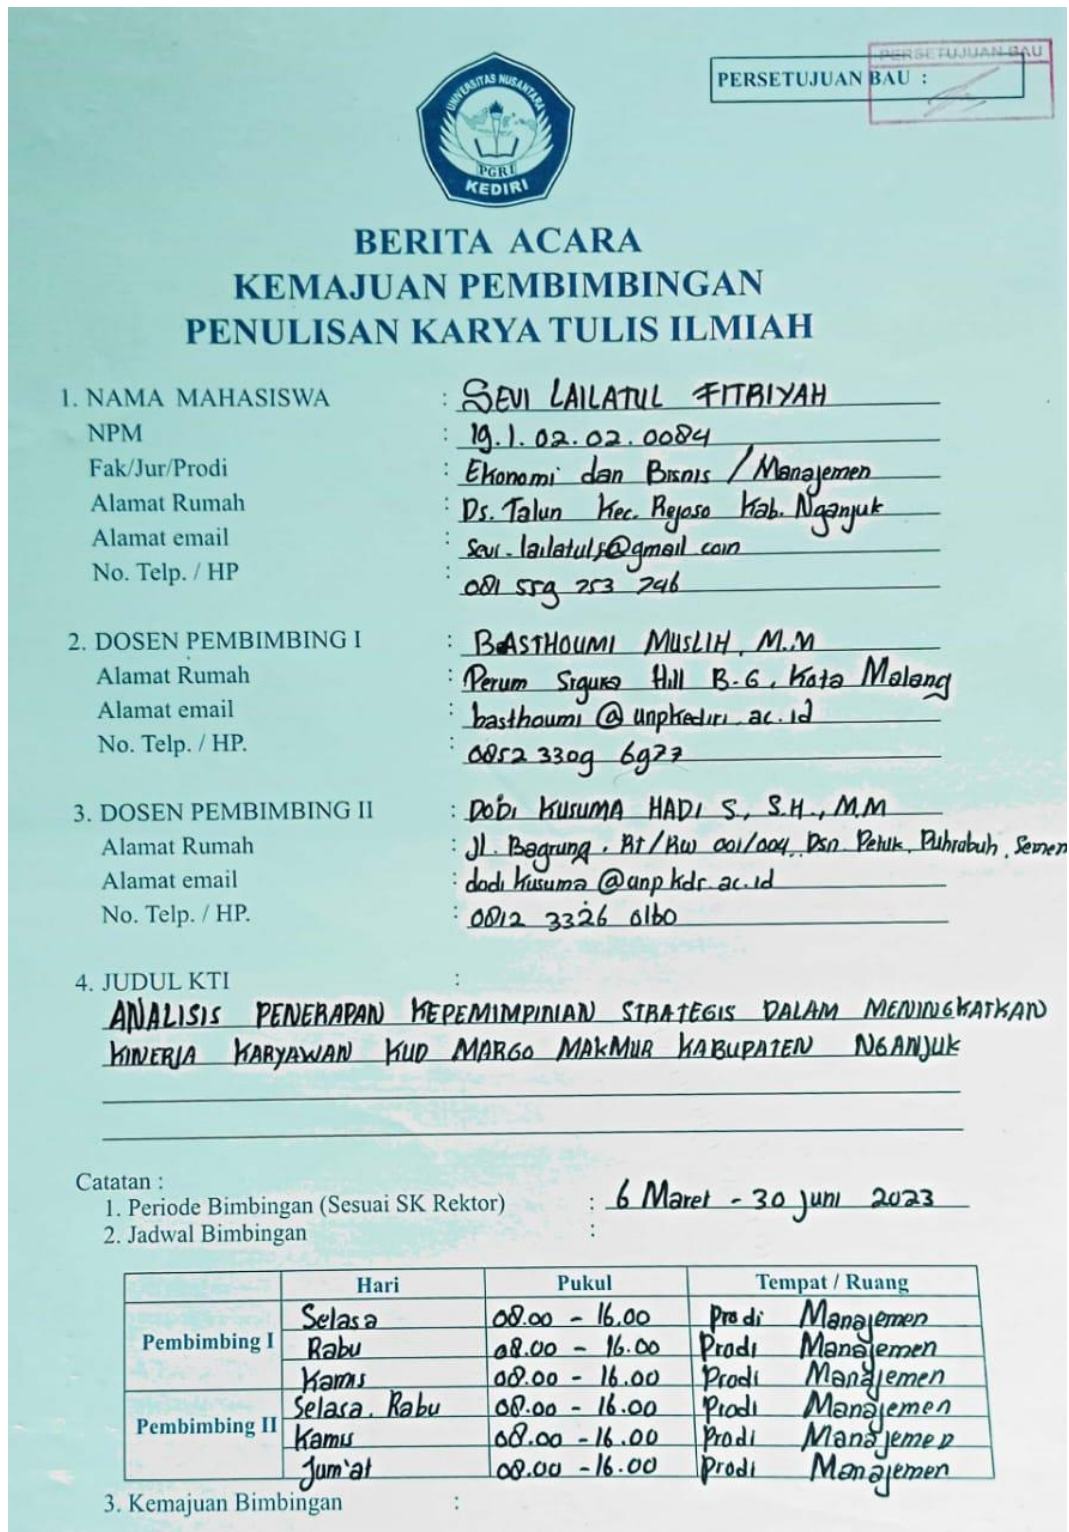 PERSETUJUAN BAU
PERSETUJUAN BAU :
UNIVERSITAS NUSANTARA
PGRI
KEDIRI
BERITA ACARA
KEMAJUAN PEMBIMBINGAN
PENULISAN KARYA TULIS ILMIAH
1. NAMA MAHASISWA : SEVI LAILATUL FITRIYAH
NPM : 19.1.02.02.0084
Fak/Jur/Prodi : Ekonomi dan Bisnis / Manajemen
Alamat Rumah : Ds. Talun Kec. Rejoso Kab. Nganjuk
Alamat email : sevi.lailatulf@gmail.com
No. Telp. / HP : 081 559 753 746
2. DOSEN PEMBIMBING I : BASTHOUMI MUSLIH, M.M
Alamat Rumah : Perum Sigura Hill B-6, Kota Malang
Alamat email : basthoumi @ unpkediri.ac.id
No. Telp. / HP. : 0852 3309 6977
3. DOSEN PEMBIMBING II : DODI KUSUMA HADI S., S.H., M.M
Alamat Rumah : Jl. Bagrung, Rt/Rw 001/004, Dsn. Petuk, Puhrubuh, Semen
Alamat email : dodikusuma @unpkdr.ac.id
No. Telp. / HP. : 0812 3326 0160
4. JUDUL KTI :
ANALISIS PENERAPAN KEPEMIMPINIAN STRATEGIS DALAM MENINGKATKAN
KINERJA KARYAWAN KUD MARGO MAKMUR KABUPATEN NGANJUK
Catatan :
1. Periode Bimbingan (Sesuai SK Rektor) : 6 Maret - 30 Juni 2023
2. Jadwal Bimbingan :
Hari Pukul Tempat / Ruang
Pembimbing I
Selasa 08.00 - 16.00 Prodi Manajemen
Rabu 08.00 - 16.00 Prodi Manajemen
Kamis 08.00 - 16.00 Prodi Manajemen
Pembimbing II
Selasa, Rabu 08.00 - 16.00 Prodi Manajemen
Kamis 08.00 - 16.00 Prodi Manajemen
Jum'at 08.00 - 16.00 Prodi Manajemen
3. Kemajuan Bimbingan :